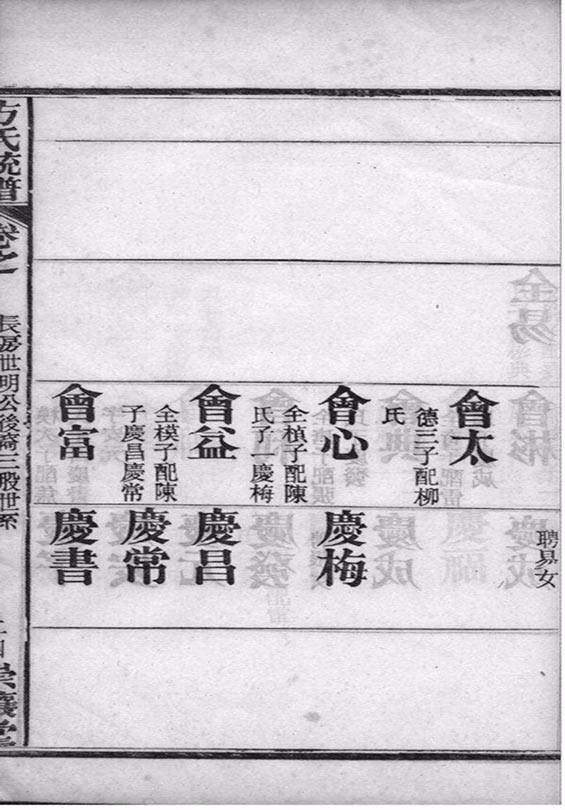 聘易女
會太
德三子配柳
氏
會心
全楨子配陳
氏子一慶梅
慶梅
會益
全模子配陳
子慶昌慶常
慶昌
慶常
會富
慶書
方氏統譜
卷之
長房世明公後裔三股世系